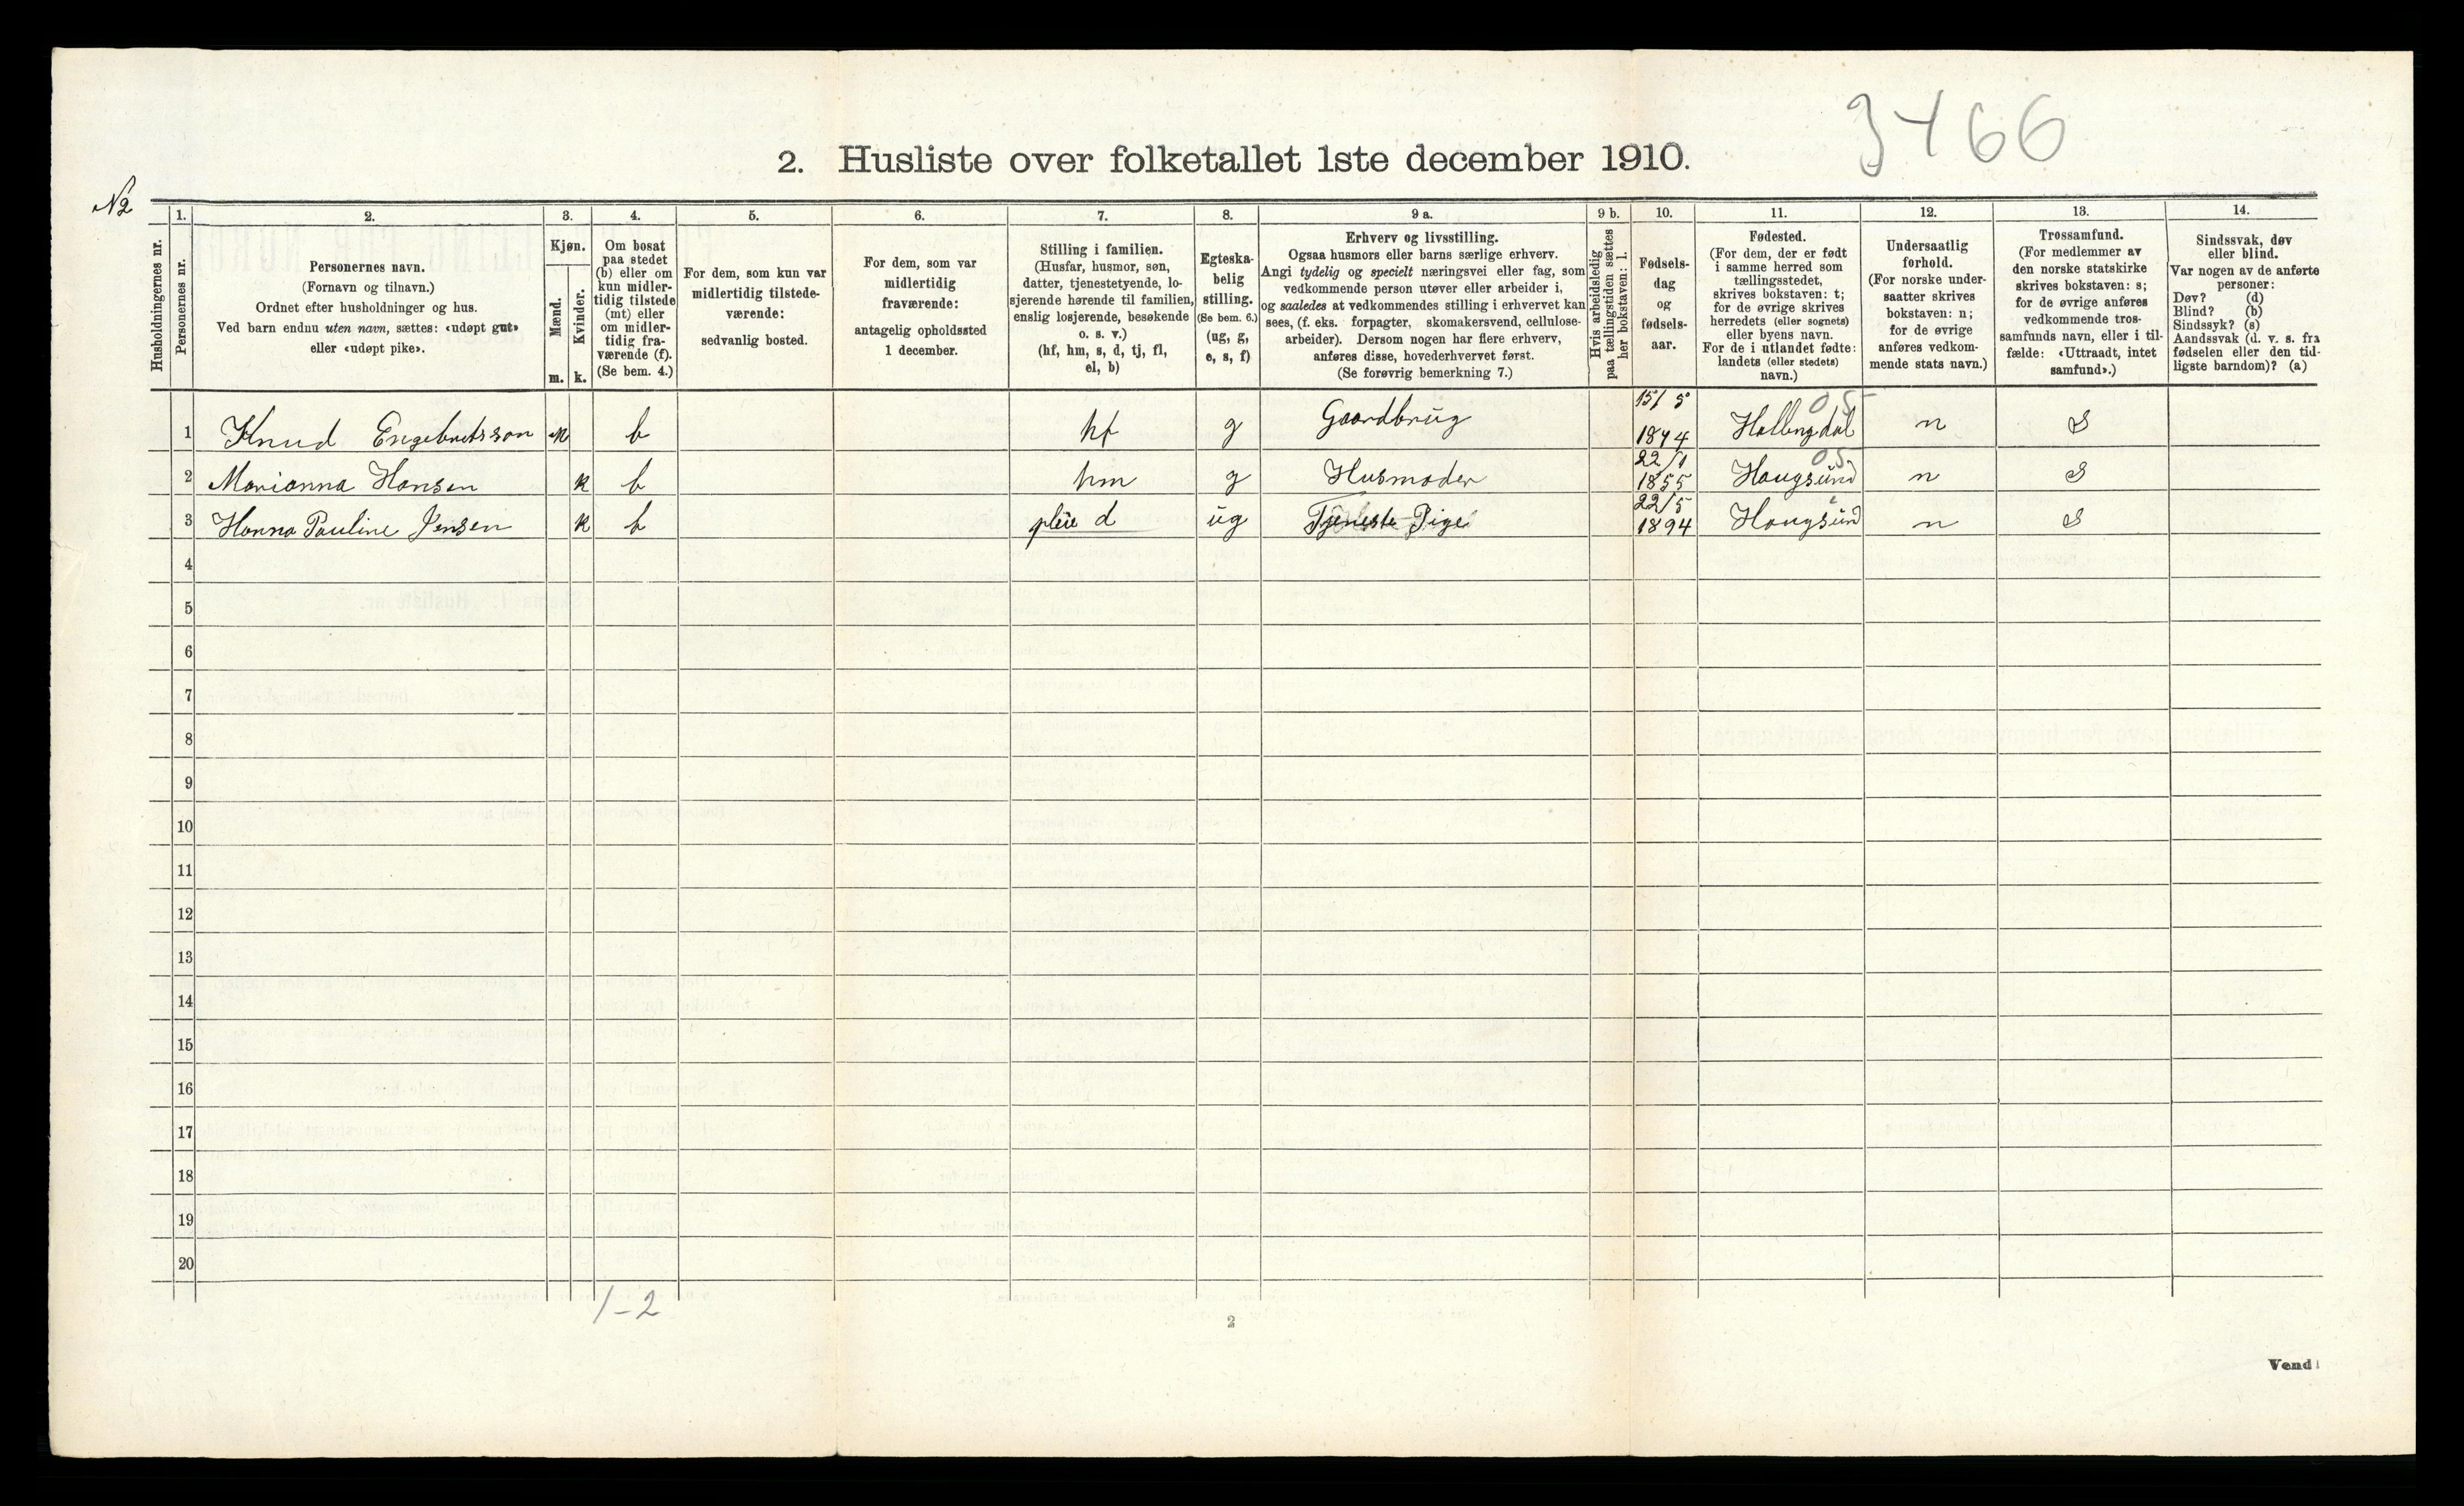 3466
2. Husliste over folketallet 1ste december 1910.
N2
Husholdningernes nr.
1.
Personernes nr.
2.
Personernes navn.
(Fornavn og tilnavn.)
Ordnet efter husholdninger og hus.
Ved barn endnu uten navn, sættes: «udøpt gut»
eller «udøpt pike».
3.
Kjøn.
Mænd.
m.
Kvinder.
k.
4.
Om bosat
paa stedet
(b) eller om
kun midler-
tidig tilstede
(mt) eller
om midler-
tidig fra-
værende (f).
(Se bem. 4.)
5.
For dem, som kun var
midlertidig tilstede-
værende:
sedvanlig bosted.
6.
For dem, som var
midlertidig
fraværende:
antagelig opholdssted
1 december.
7.
Stilling i familien.
(Husfar, husmor, søn,
datter, tjenestetyende, lo-
sjerende hørende til familien,
enslig losjerende, besøkende
o. s. v.)
(hf, hm, s, d, tj, fl,
el, b)
8.
Egteska-
belig
stilling.
(Se bem. 6.)
(ug, g,
e, s, f)
9 a.
Erhverv og livsstilling.
Ogsaa husmors eller barns særlige erhverv.
Angi tydelig og specielt næringsvei eller fag, som
vedkommende person utøver eller arbeider i,
og saaledes at vedkommendes stilling i erhvervet kan
sees, (f. eks. forpagter, skomakersvend, cellulose-
arbeider). Dersom nogen har flere erhverv,
anføres disse, hovederhvervet først.
(Se forøvrig bemerkning 7.)
9 b.
Hvis arbeidsledig
paa tællingstiden sættes
her bokstaven: l.
10.
Fødsels-
dag
og
fødsels-
aar.
11.
Fødested.
(For dem, der er født
i samme herred som
tællingsstedet,
skrives bokstaven: t;
for de øvrige skrives
herredets (eller sognets)
eller byens navn.
For de i utlandet fødte:
landets (eller stedets)
navn.)
12.
Undersaatlig
forhold.
(For norske under-
saatter skrives
bokstaven: n;
for de øvrige
anføres vedkom-
mende stats navn.)
13.
Trossamfund.
(For medlemmer av
den norske statskirke
skrives bokstaven: s;
for de øvrige anføres
vedkommende tros-
samfunds navn, eller i til-
fælde: «Uttraadt, intet
samfund».)
14.
Sindssvak, døv
eller blind.
Var nogen av de anførte
personer:
Døv? (d)
Blind? (b)
Sindssyk? (s)
Aandssvak (d. v. s. fra
fødselen eller den tid-
ligste barndom)? (a)
1 Knud Engebretsson m b hf g Gaardbrug 15/5 1844 Hallingdal 05 n S
2 Marianna Hansen k b hm g Husmoder 22/1 1855 Hougsund 05 n S
3 Hanna Pauline Jensen k b pleie d ug Tjeneste Pige 22/5 1894 Hougsund n S
4
5
6
7
8
9
10
11
12
13
14
15
16
17
18
19
20
1-2
2
Vend